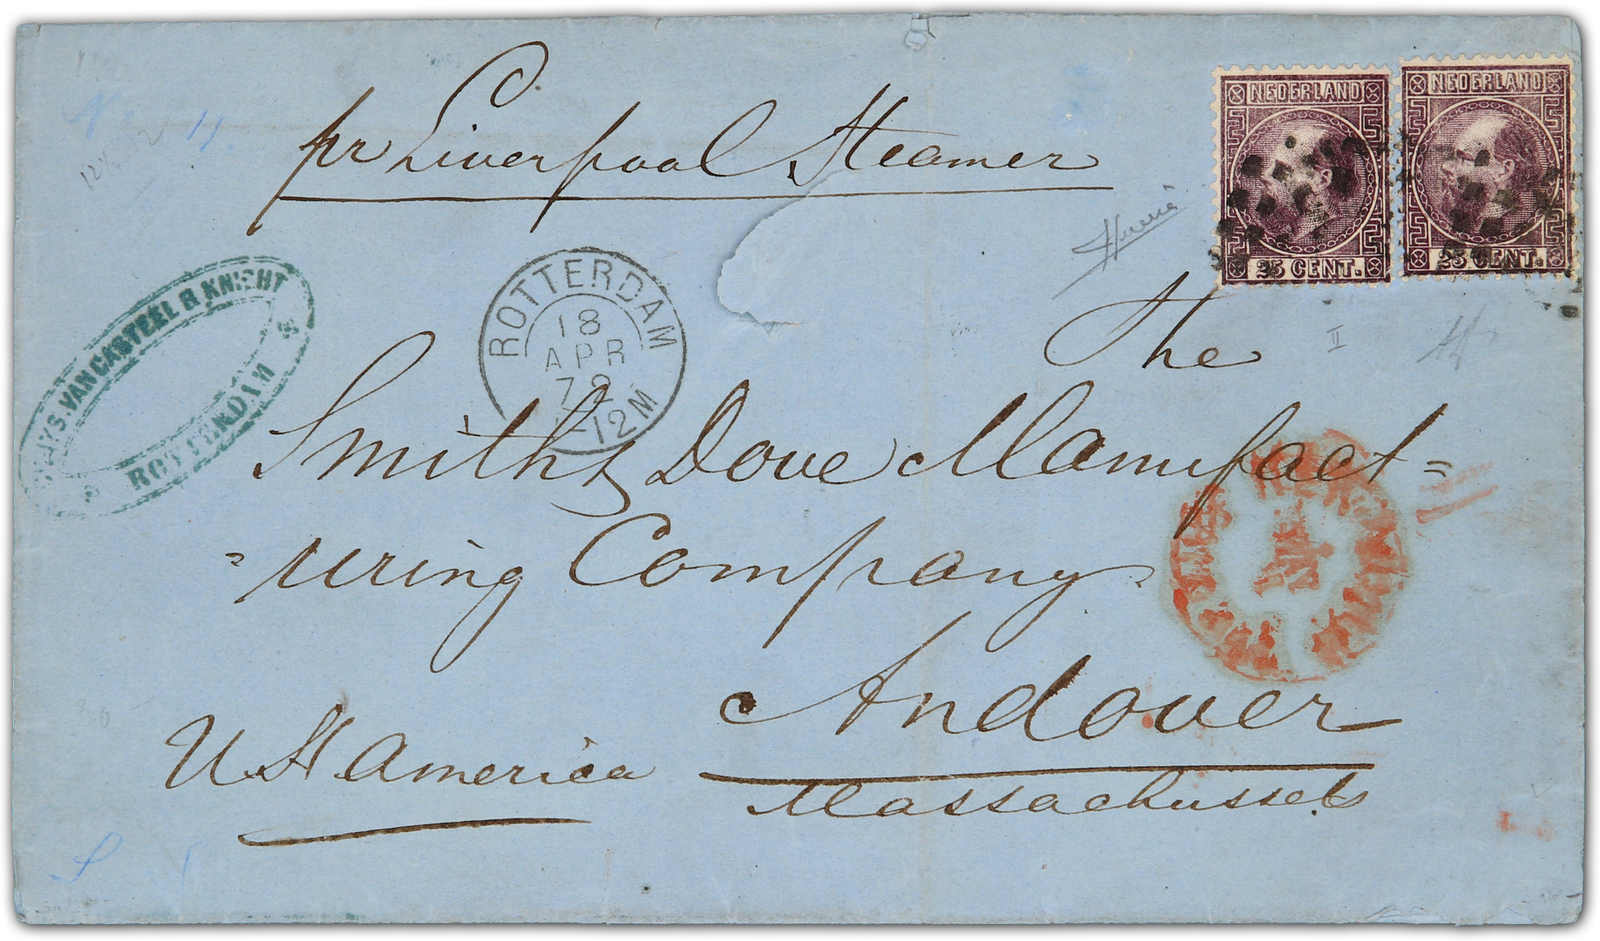 pr Liverpool Steamer
NEDERLAND
25 CENT.
NEDERLAND
25 CENT.
VAN CASTEEL & KNIGHT
ROTTERDAM
ROTTERDAM
18
APR
72
-12M
II
The
Smith & Dove Manufact=
=uring Company
Andover
U St America
Massachussets